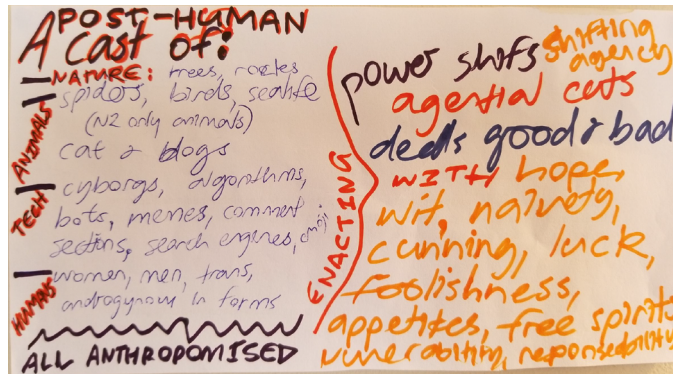 A POST-HUMAN
cast of:
NATURE: trees, rocks
ANIMALS
spiders, birds, sealife
(NZ only animals)
cat & blogs
TECH
cyborgs, algorithms,
bots, memes, comment
sections, search engines, emoji
HUMANS
women, men, trans,
androgynous in forms
ALL ANTHROPOMISED
ENACTING
power shifs shifting
agency
agential cuts
deeds good & bad
WITH hope,
wit, naivety,
cunning, luck,
foolishness,
appetites, free spirits
vunerability, responseability